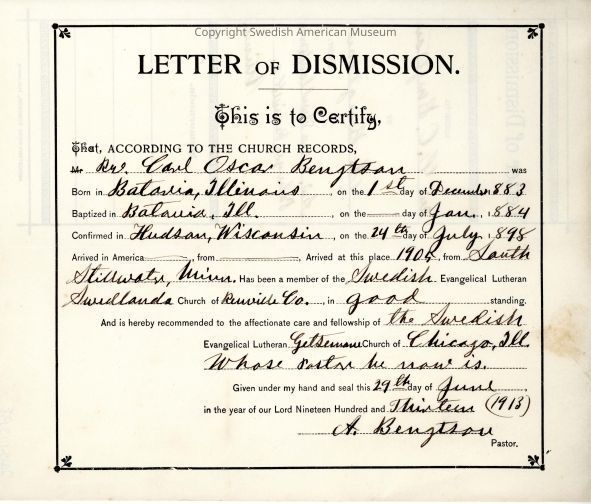 Copyright Swedish American Museum
LETTER OF DISMISSION.
This is to Certify,
That, ACCORDING TO THE CHURCH RECORDS,
Mr Rev. Carl Oscar Bengtson was
Born in Batavia, Illinois, on the 1st day of December 1883
Baptized in Batavia, Ill. on the day of Jan. 1884
Confirmed in Hudson, Wisconsin, on the 24th day of July, 1898
Arrived in America, from Arrived at this place 1905, from South
Stillwater, Minn. Has been a member of the Swedish Evangelical Lutheran
Swedlanda Church of Renville Co., in good standing.
And is hereby recommended to the affectionate care and fellowship of the Swedish
Evangelical Lutheran Getsemane Church of Chicago, Ill.
Whose pastor he now is.
Given under my hand and seal this 29th day of June
in the year of our Lord Nineteen Hundred and Thirteen (1913)
A. Bengtson
Pastor.